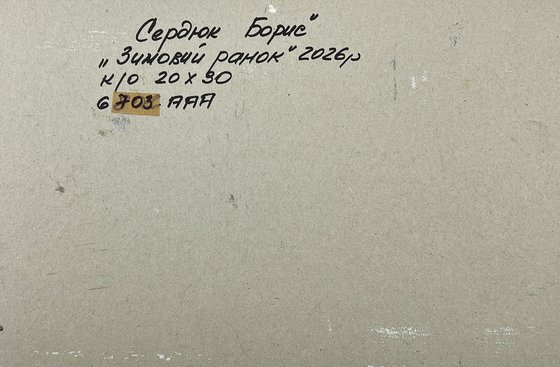 Сердюк Борис"
„Зимовий ранок" 2026р
к/о 20х30
6 703 ААА